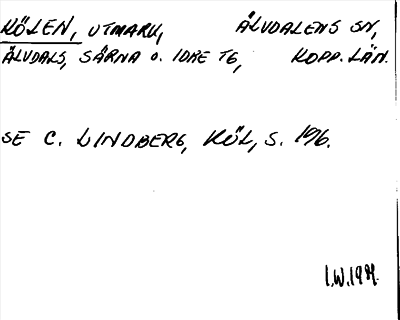 KÖLEN, UTMARK, ÄLVDALENS SN,
ÄLVDALS, SÄRNA O. IDRE TG, KOPP. LÄN.
SE C. LINDBERG, KÖL, S. 196.
I.W.